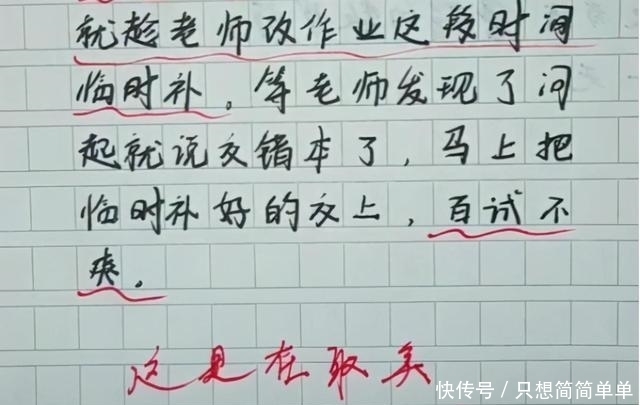 就趁老师改作业这段时间
临时补。等老师发现了问
起就说交错本了，马上把
临时补好的交上，百试不
爽。
这是在取关
快传号/只想简简单单